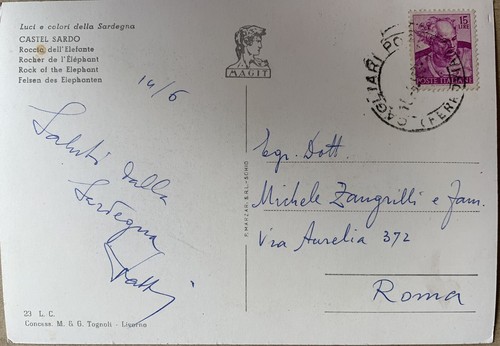 Luci e colori della Sardegna
CASTEL SARDO
Roccia dell'Elefante
Rocher de l'Éléphant
Rock of the Elephant
Felsen des Elephanten
MAGIT
15
LIRE
POSTE ITALIANE
CAGLIARI
(FERROVIA)
14/6
Saluti dalla
Sardegna
Egr. Dott.
Michele Zangrilli e Fam.
Via Aurelia 372
Roma
P. MARZARI S.R.L.-SCHIO
23 L. C.
Concess. M. & G. Tognoli - Livorno